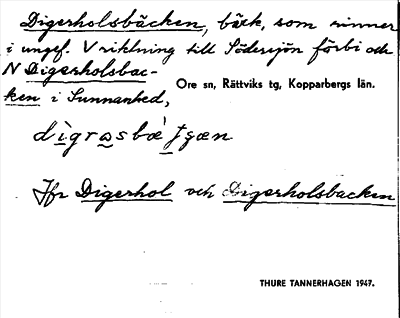 Digerholsbäcken, bäck, som rinner
i ungef. V riktning till Södersjön förbi och
N Digerholsbac-
ken i Sunnanhed,
Ore sn, Rättviks tg, Kopparbergs län.
Jfr Digerhol och Digerholsbacken
THURE TANNERHAGEN 1947.